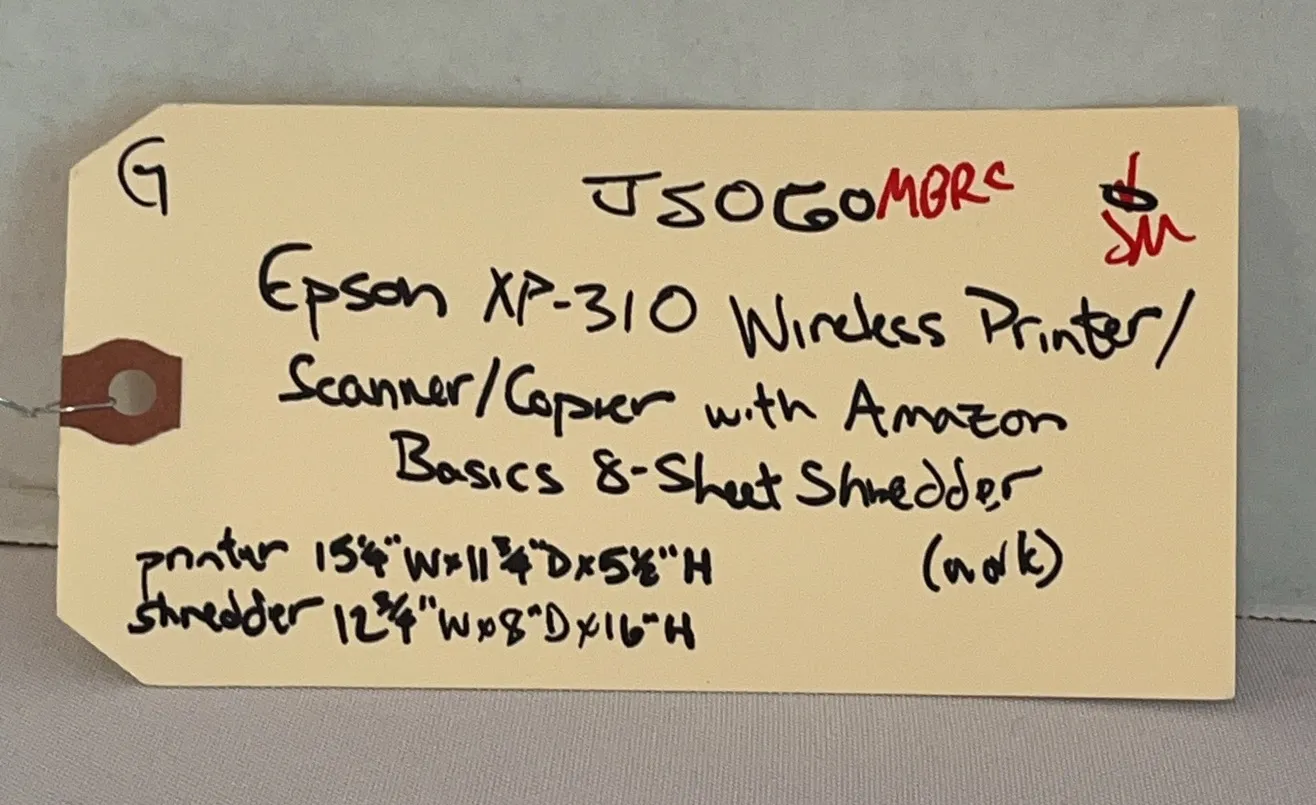 G
JSOGOMBRC
JM
Epson XP-310 Wireless Printer/
Scanner/Copier with Amazon
Basics 8-Sheet Shredder
printer 15¼"Wx11¾"Dx5½"H
(work)
shredder 12¾"Wx8"Dx16"H